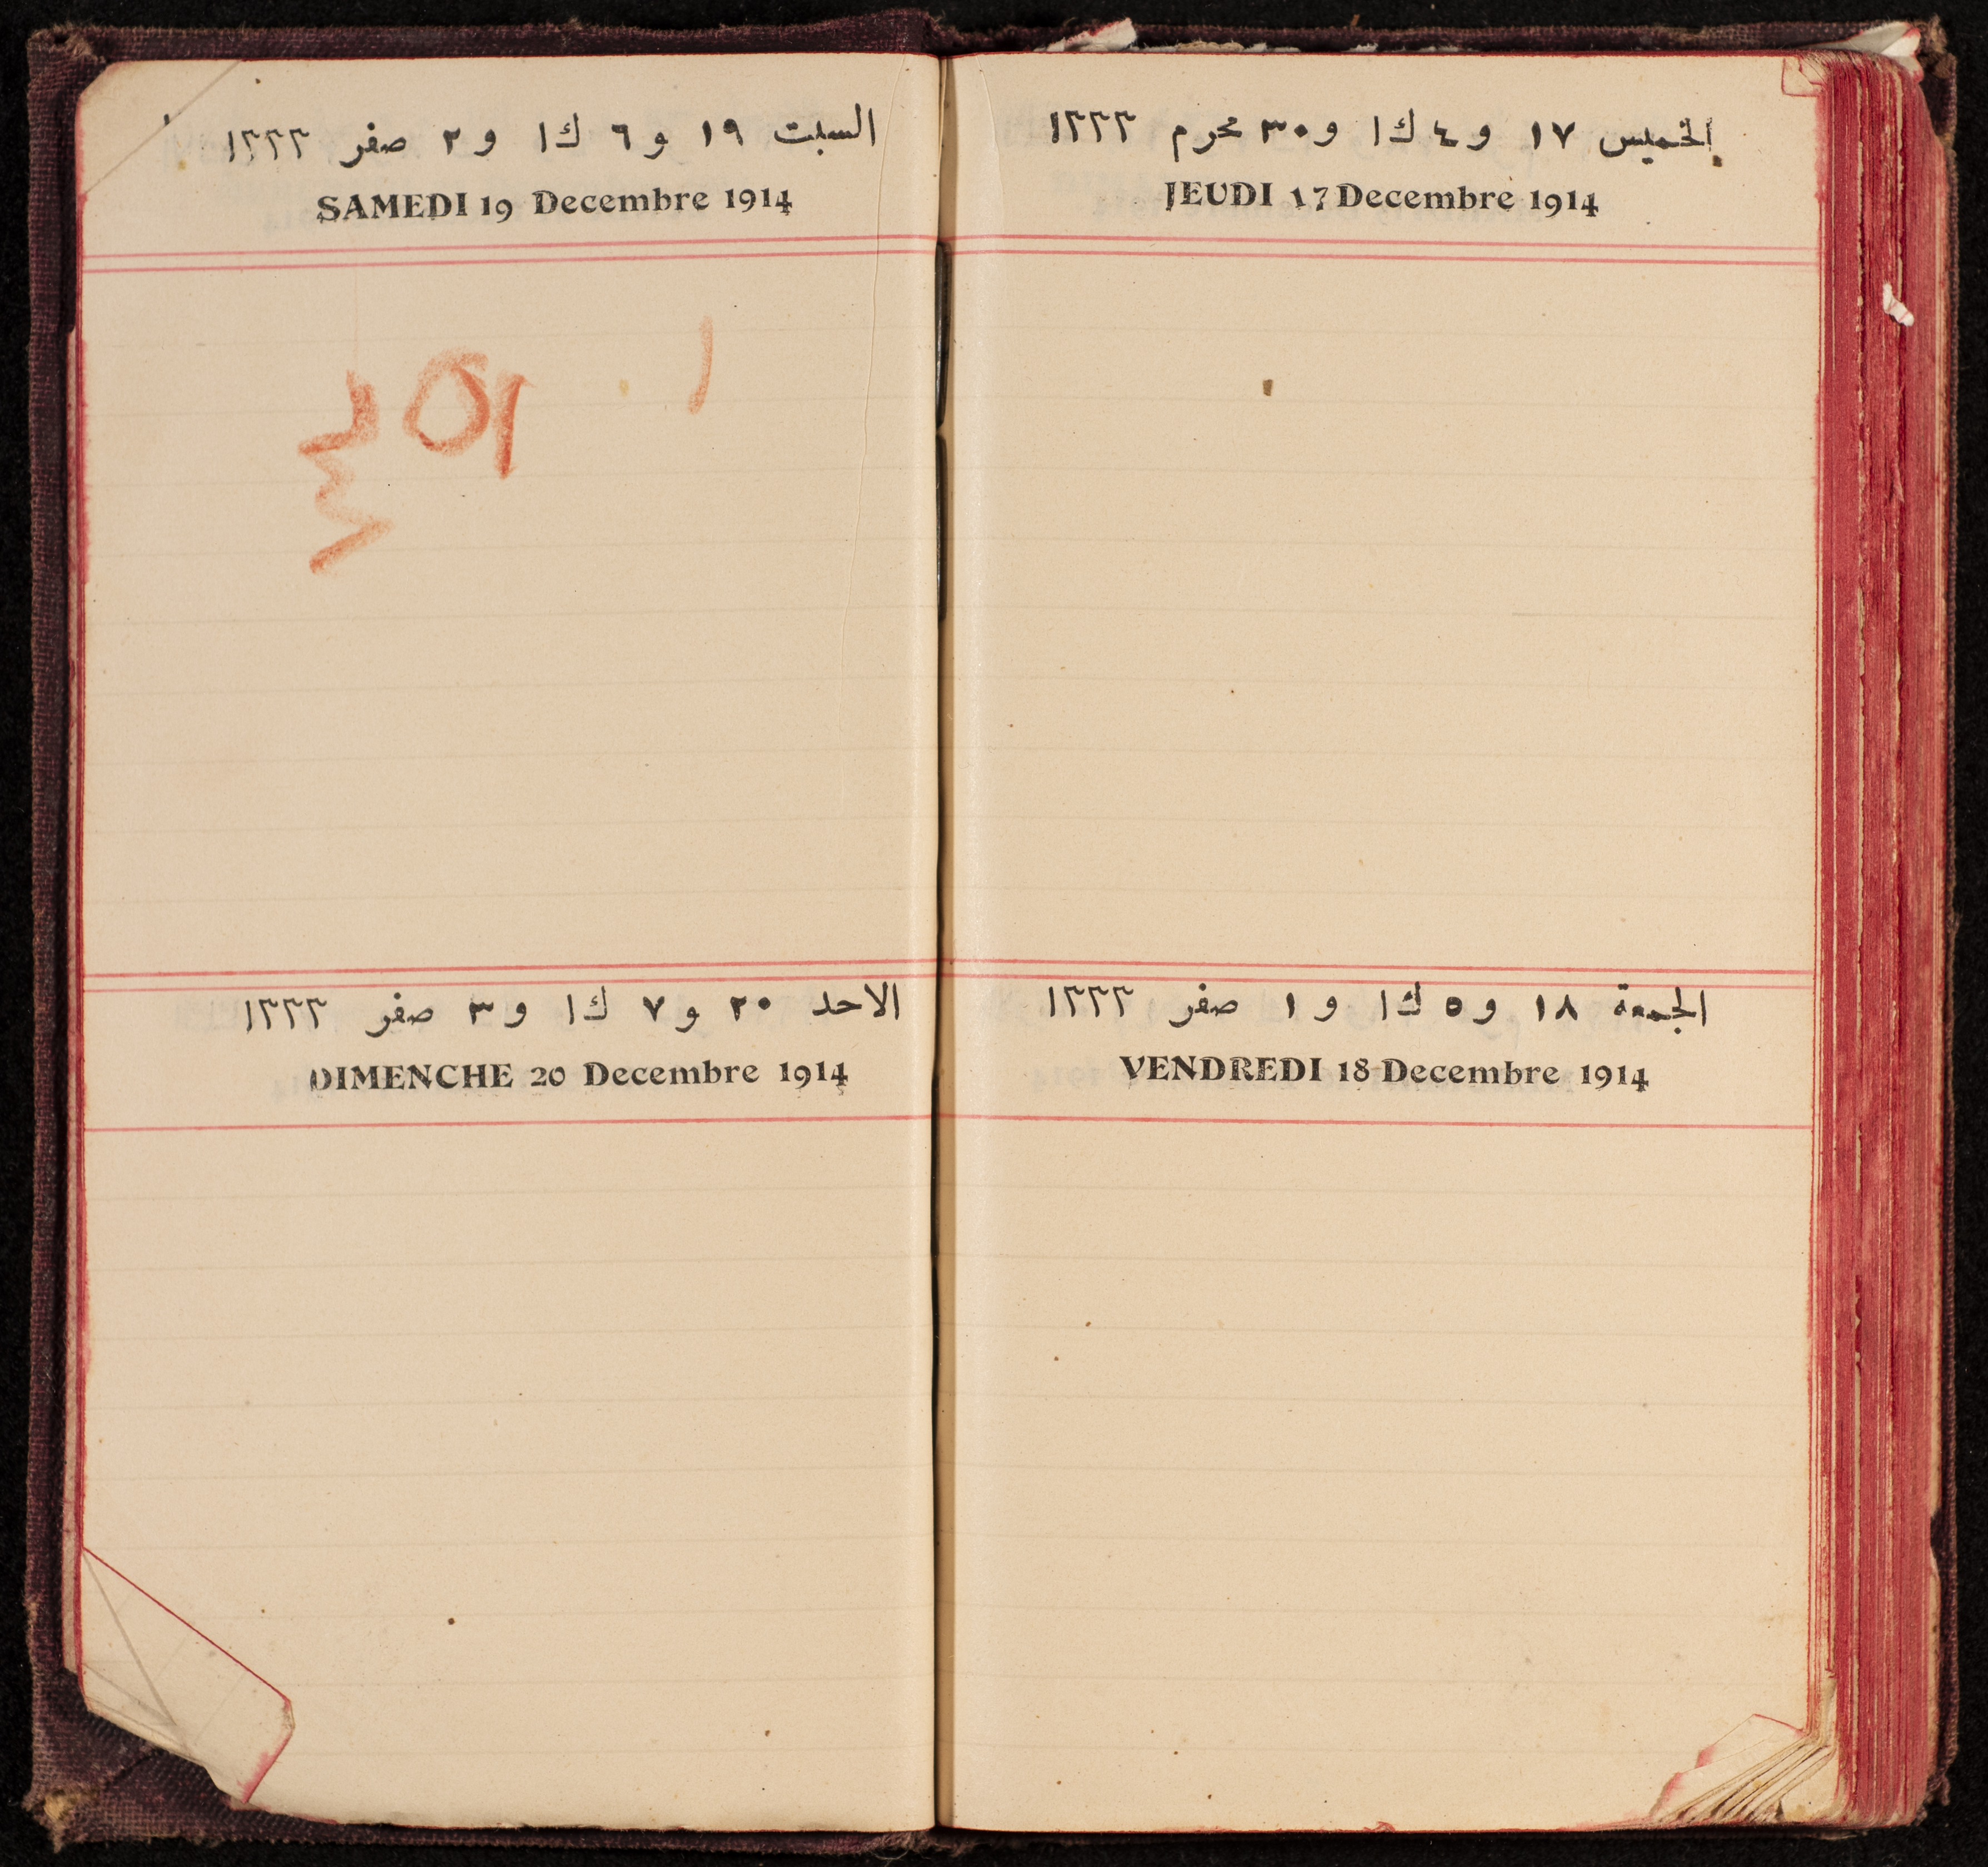 الخميس ١٧ و ٤ ك١ و ٣٠ محرم ١٣٣٣
JEUDI 17 Decembre 1914
الجمعة ١٨ و ٥ ك١ و ١ صفر ١٣٣٣
VENDREDI 18 Decembre 1914
السبت ١٩ و ٦ ك١ و ٢ صفر ١٣٣٣
SAMEDI 19 Decembre 1914
الاحد ٢٠ و ٧ ك١ و ٣ صفر ١٣٣٣
DIMENCHE 20 Decembre 1914